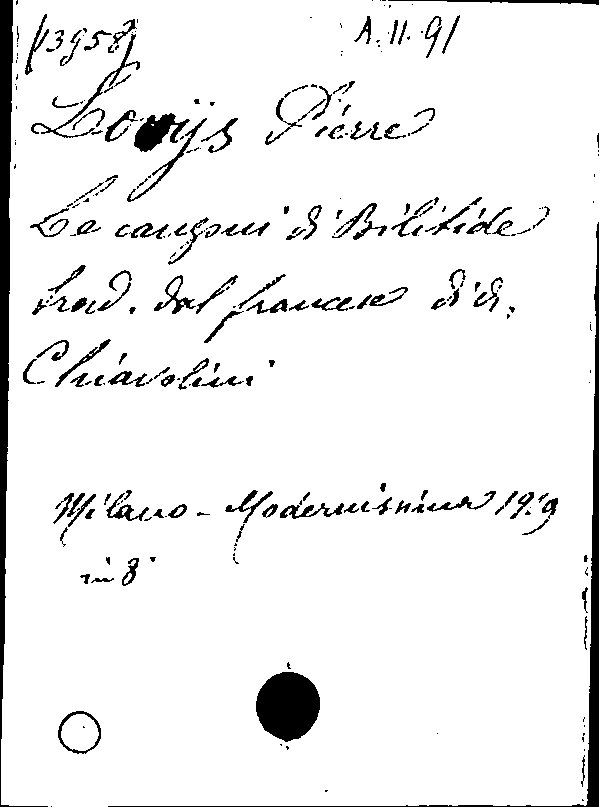 (13958)
A. 11. 91
Louÿs Pierre
Le canzoni di Bilitide
trad. dal francese di
Chiavolini
Milano - Modernissima 1919
in 8°